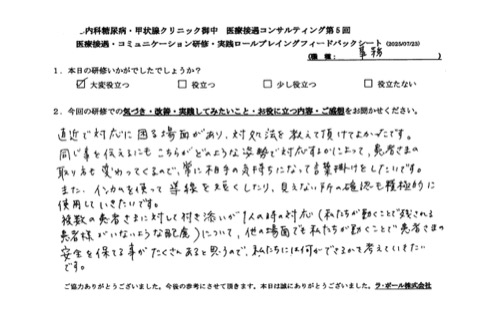 内科糖尿病・甲状腺クリニック御中 医療接遇コンサルティング第5回
医療接遇・コミュニケーション研修・実践ロールプレイングフィードバックシート (2025/07/23)
(職種: 事務)
1. 本日の研修いかがでしたでしょうか?
☑大変役立つ □役立つ □少し役立つ □役立たない
2. 今回の研修での気づき・改善・実践してみたいこと・お役に立つ内容・ご感想をお聞かせください。
直近で対応に困る場面があり、対処法を教えて頂けてよかったです。
同じ事を伝えるにもこちらがどのような姿勢で対応するかによって、患者さまの
取り方も変わってくるので、常に相手の気持ちになって言葉掛けをしたいです。
また、インカムを使って導線を短くしたり、見えない所の確認も積極的に
使用していきたいです。
複数の患者さまに対して付き添いが1人の時の対応(私たちが動くことで残される
患者様がいないような配慮)について、他の場面でも私たちが動くことで患者さまの
安全を保てる事がたくさんあると思うので、私たちには何ができるか考えていきたい
です。
ご協力ありがとうございました。今後の参考にさせて頂きます。本日は誠にありがとうございました。 ラ・ポール株式会社